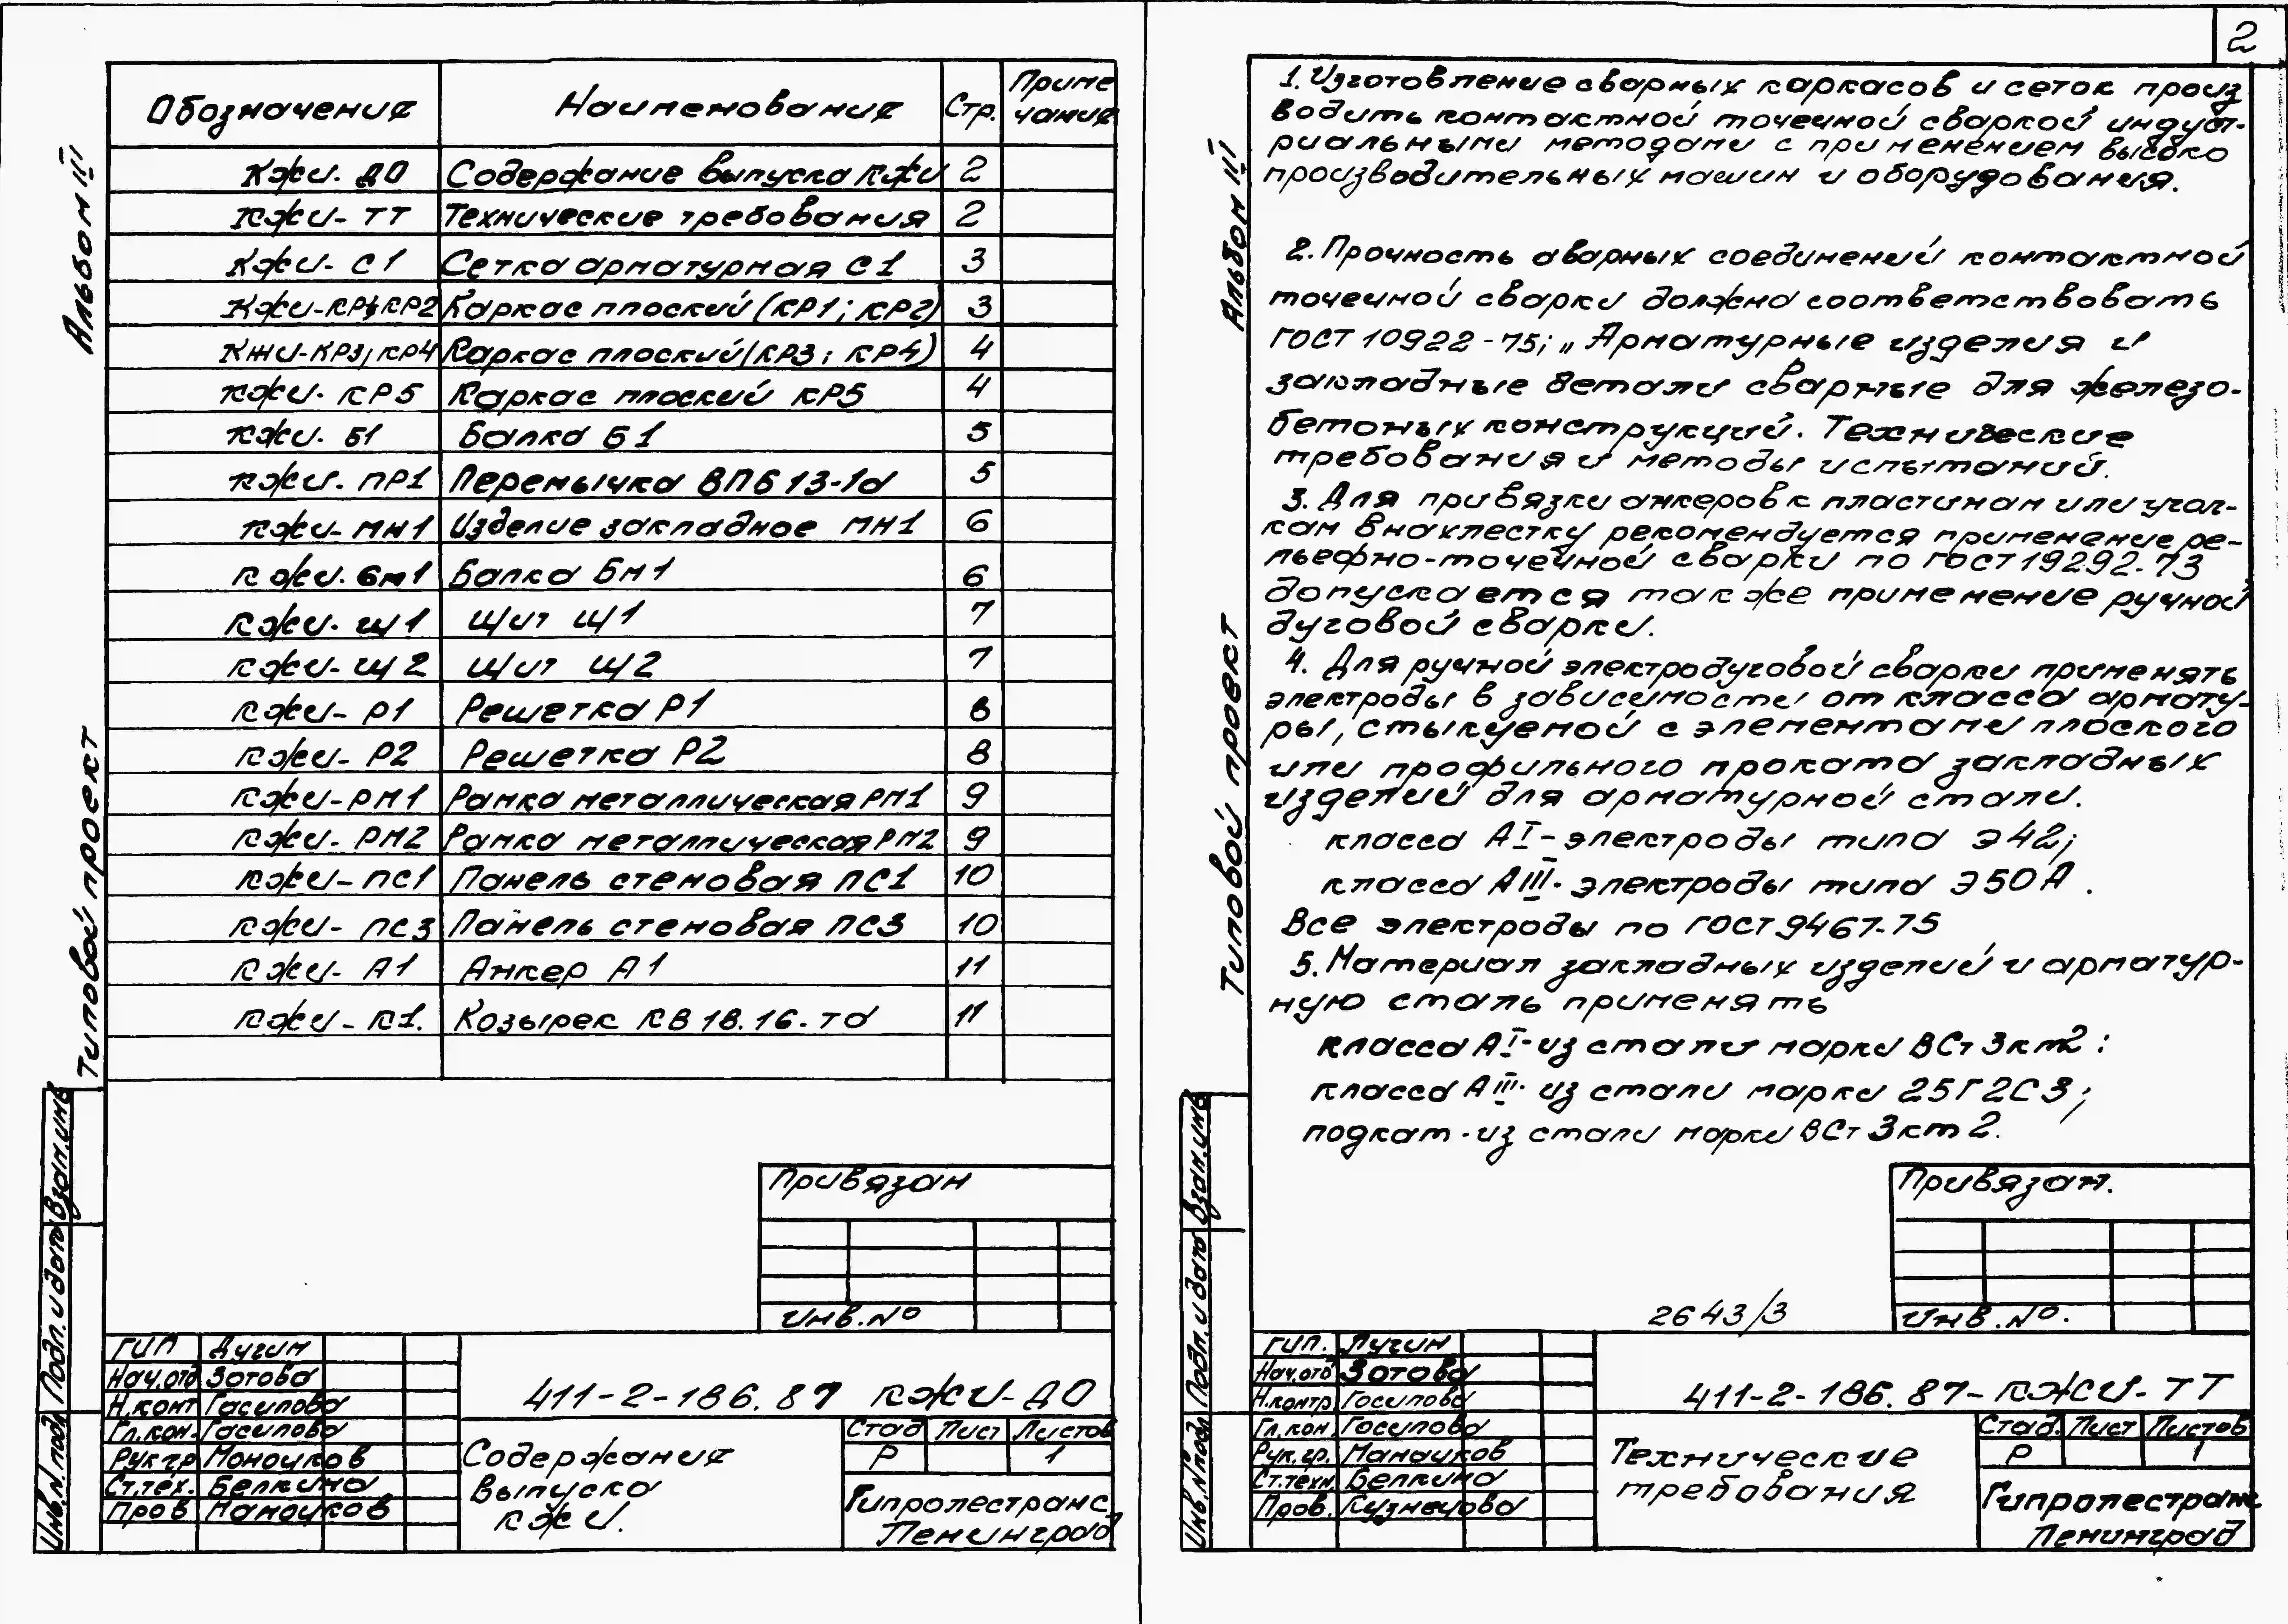 2
Альбом III
Типовой проект
Обозначение Наименование Стр. Приме
чание
КЖИ. ДО Содержание выпуска КЖИ 2
КЖИ- ТТ Технические требования 2
КЖИ- С1 Сетка арматурная С1 3
КЖИ-КР1;КР2 Каркас плоский (КР1; КР2) 3
КЖИ-КР3; КР4 Каркас плоский (КР3; КР4) 4
КЖИ. КР5 Каркас плоский КР5 4
КЖИ. Б1 Балка Б1 5
КЖИ. ПР1 Перемычка ВПБ 13-1а 5
КЖИ- МН1 Изделие закладное МН1 6
КЖИ. Бм1 Балка Бм1 6
КЖИ. Щ1 Щит Щ1 7
КЖИ- Щ2 Щит Щ2 7
КЖИ- Р1 Решетка Р1 8
КЖИ- Р2 Решетка Р2 8
КЖИ-РМ1 Рамка металлическая РМ1 9
КЖИ- РМ2 Рамка металлическая РМ2 9
КЖИ-ПС1 Панель стеновая ПС1 10
КЖИ- ПС3 Панель стеновая ПС3 10
КЖИ- А1 Анкер А1 11
КЖИ-К1. Козырек КВ 18.16.-та 11
Привязан
Инв.№
ГИП Лугин
Нач.отд Зотова
Н.конт Гасилова
Гл.кон. Гасилова
Рук гр Манаиков
Ст.тех. Белкина
Пров Манаиков
411-2-186.87 КЖИ-ДО
Содержание
выпуска
КЖИ.
Стад Лист Листов
Р 1
Гипролестранс
Ленинград
Инв.N подл Подп. и дата Взам.инв
Альбом III
Типовой проект
1. Изготовление сварных каркасов и сеток произ
водить контактной точечной сваркой индуст-
риальными методами с применением высоко
производительных машин и оборудования.
2. Прочность сварных соединений контактной
точечной сварки должна соответствовать
ГОСТ 10922-75; „Арматурные изделия и
закладные детали сварные для железо-
бетоных конструкций. Технические
требования и методы испытаний.
3. Для привязки анкеров к пластинам или угол-
кам внахлестку рекомендуется применение ре-
льефно-точечной сварки по ГОСТ 19292-73
допускается также применение ручной
дуговой сварки.
4. Для ручной электродуговой сварки применять
электроды в зависимости от класса армату-
ры, стыкуемой с элементами плоского
или профильного проката закладных
изделий для арматурной стали.
класса АI- электроды типа Э42;
класса АIII- электроды типа Э50А.
Все электроды по ГОСТ 9467-75
5. Материал закладных изделий и арматур-
ную сталь применять
класса АI-из стали марки ВСт3кп2:
класса АIII- из стали марки 25Г2С3;
подкат-из стали марки ВСт3кп2.
Привязан.
Инв.№.
2643/3
ГИП. Лугин
Нач.отд Зотова
Н.контр Гасилова
Гл.кон. Гасилова
Рук.гр. Манаиков
Ст.техн. Белкина
Пров. Кузнецова
411-2-186.87-КЖИ-ТТ
Технические
требования
Стад. Лист Листов
Р 1
Гипролестранс
Ленинград
Инв.N подл Подп. и дата Взам.инв